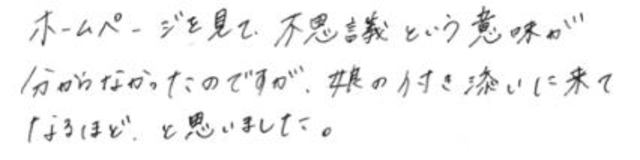 ホームページを見て、不思議という意味が
分からなかったのですが、娘の付き添いに来て
なるほど、と思いました。